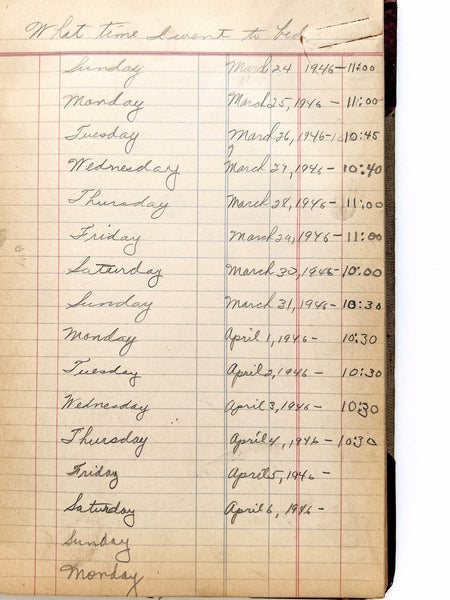 What time I went to bed
Sunday March 24 1946-11:00
Monday March 25, 1946 - 11:00
Tuesday March 26, 1946-10:45
Wednesday March 27, 1946- 10:40
Thursday March 28, 1946 - 11:00
Friday March 29, 1946 - 11:00
Saturday March 30, 1946-10:00
Sunday March 31, 1946 - 10:30
Monday April 1, 1946 - 10:30
Tuesday April 2, 1946 - 10:30
Wednesday April 3, 1946 - 10:30
Thursday April 4, 1946 - 10:30
Friday April 5, 1946 -
Saturday April 6, 1946 -
Sunday
Monday